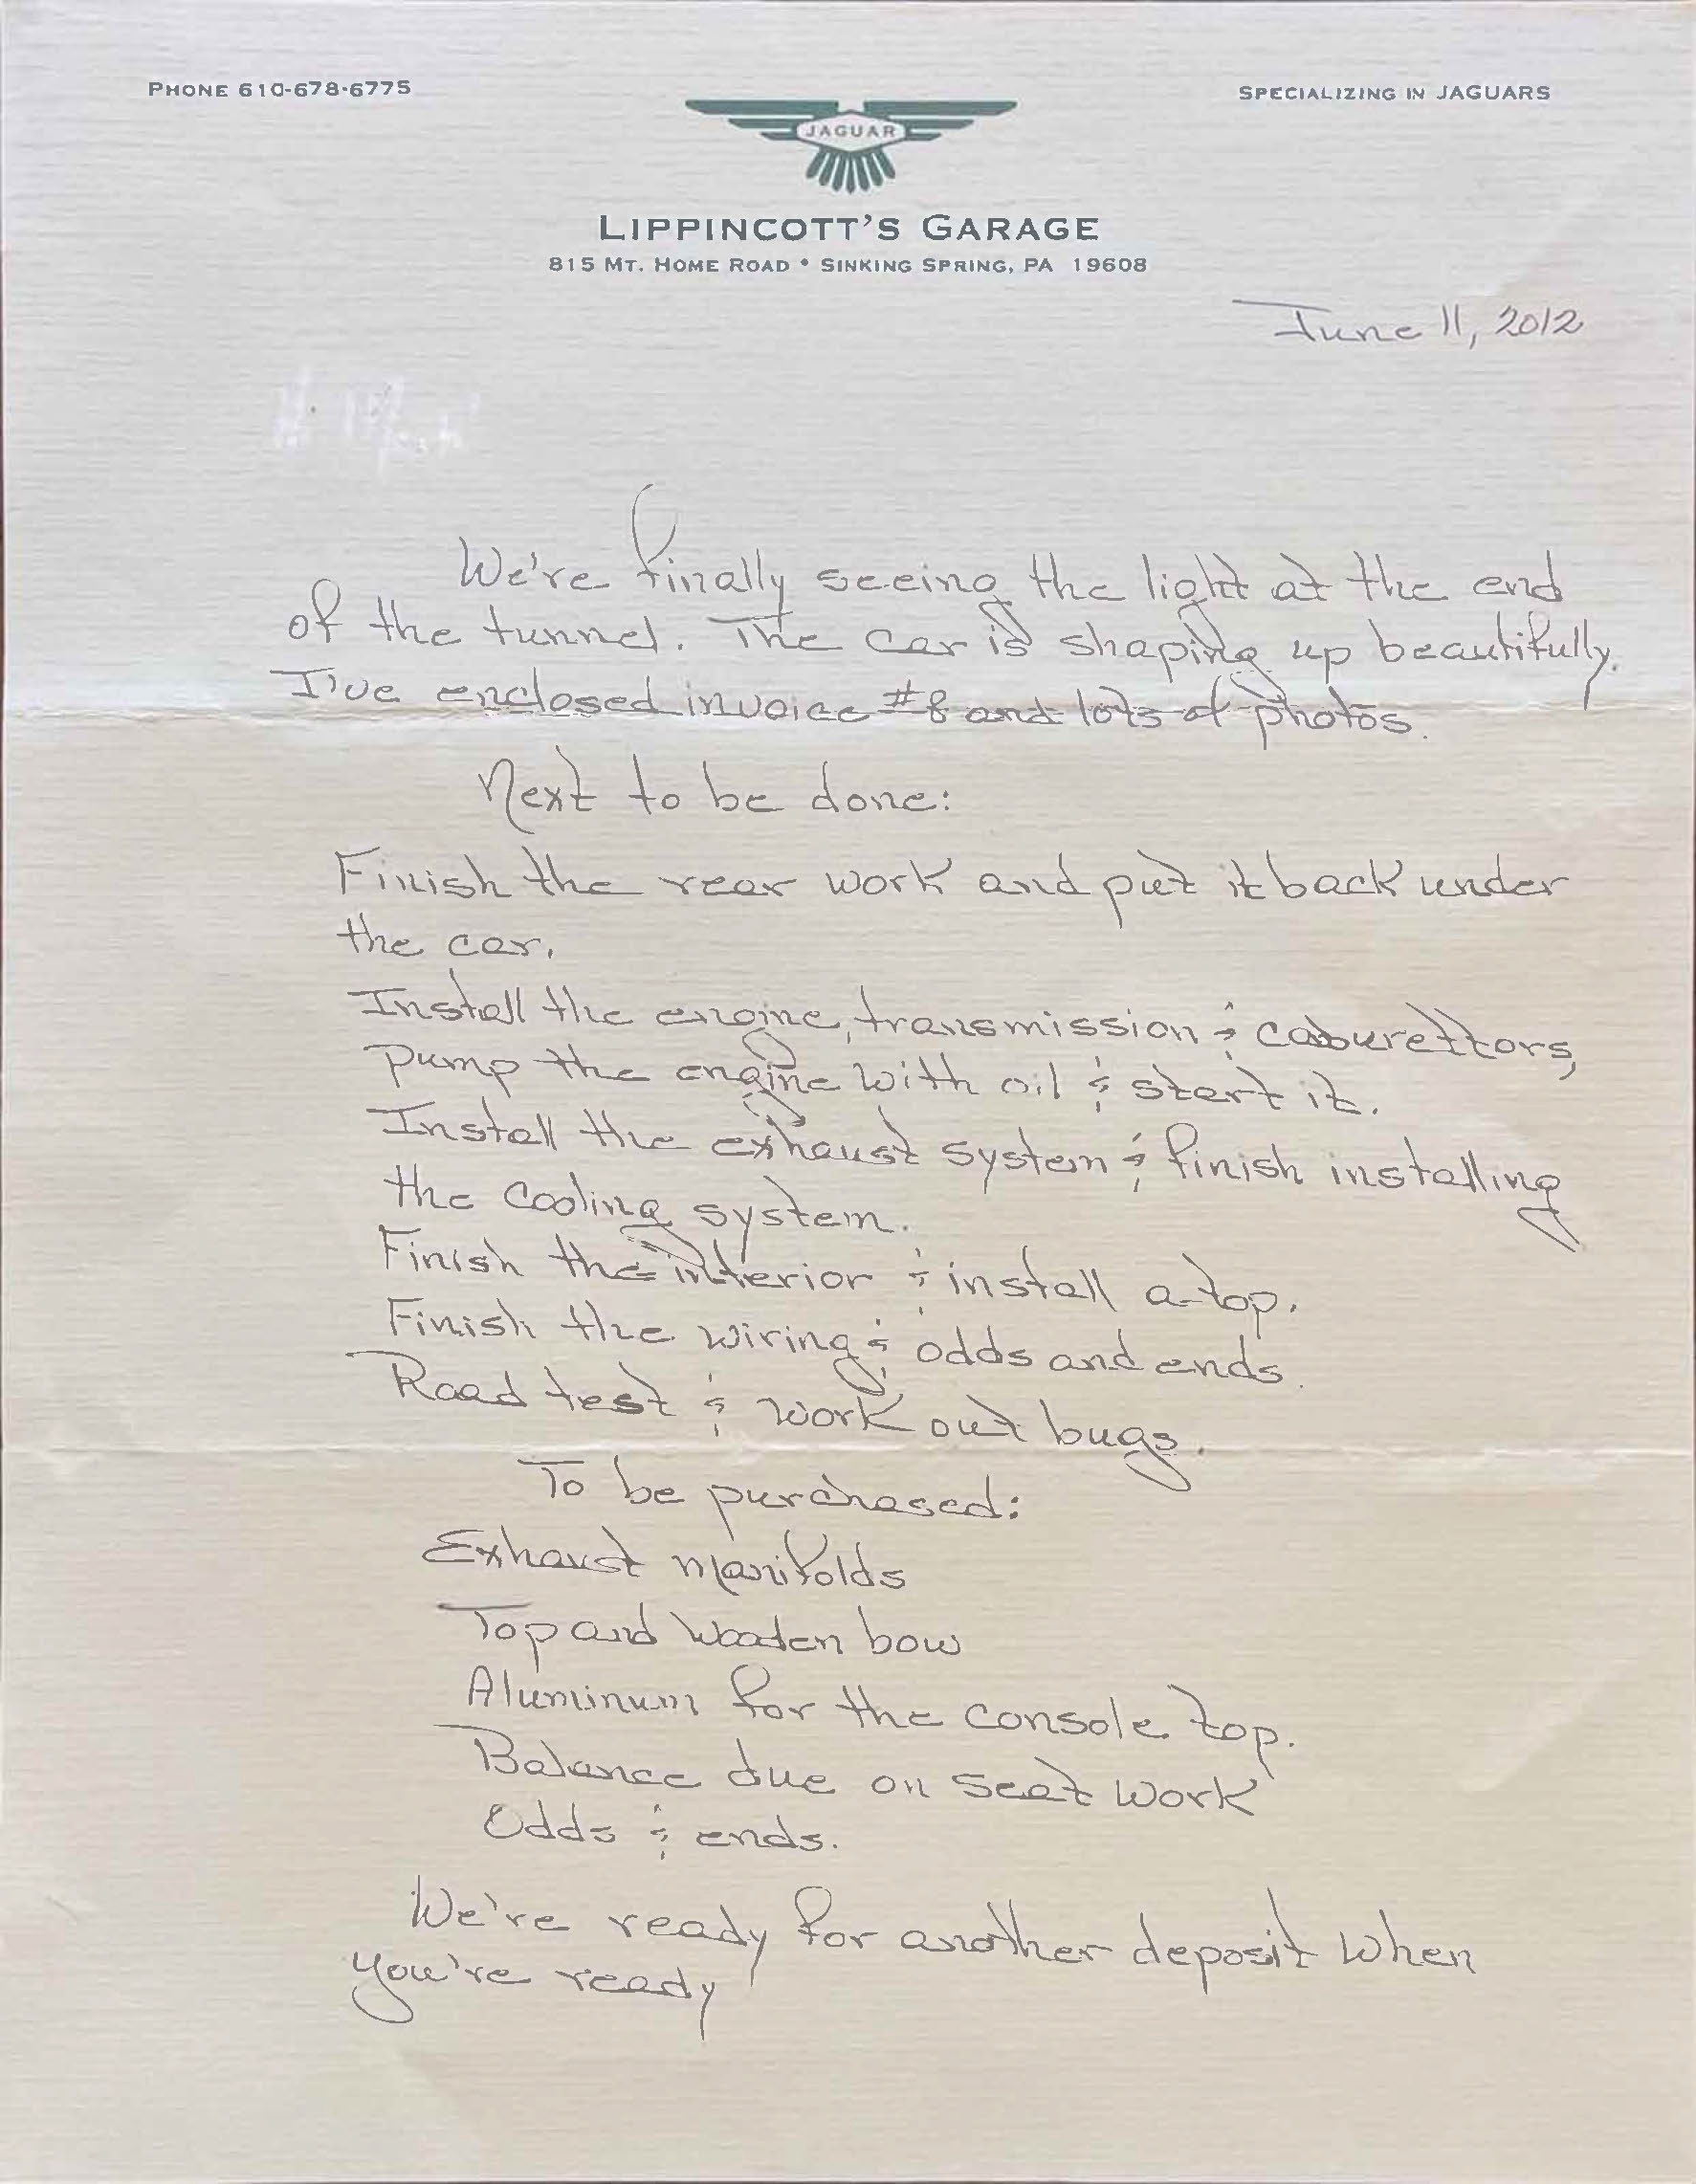 PHONE 610-678-6775
SPECIALIZING IN JAGUARS
JAGUAR
LIPPINCOTT'S GARAGE
815 MT. HOME ROAD • SINKING SPRING, PA 19608
June 11, 2012
We're finally seeing the light at the end
of the tunnel. The car is shaping up beautifully.
I've enclosed invoice #8 and lots of photos.
Next to be done:
Finish the rear work and put it back under
the car.
Install the engine, transmission & caburettors,
pump the engine with oil & start it.
Install the exhaust system & finish installing
the cooling system.
Finish the interior & install a top.
Finish the wiring & odds and ends.
Road test & work out bugs.
To be purchased:
Exhaust manifolds
Top and wooden bow
Aluminum for the console top.
Balance due on seat work
Odds & ends.
We're ready for another deposit when
you're ready